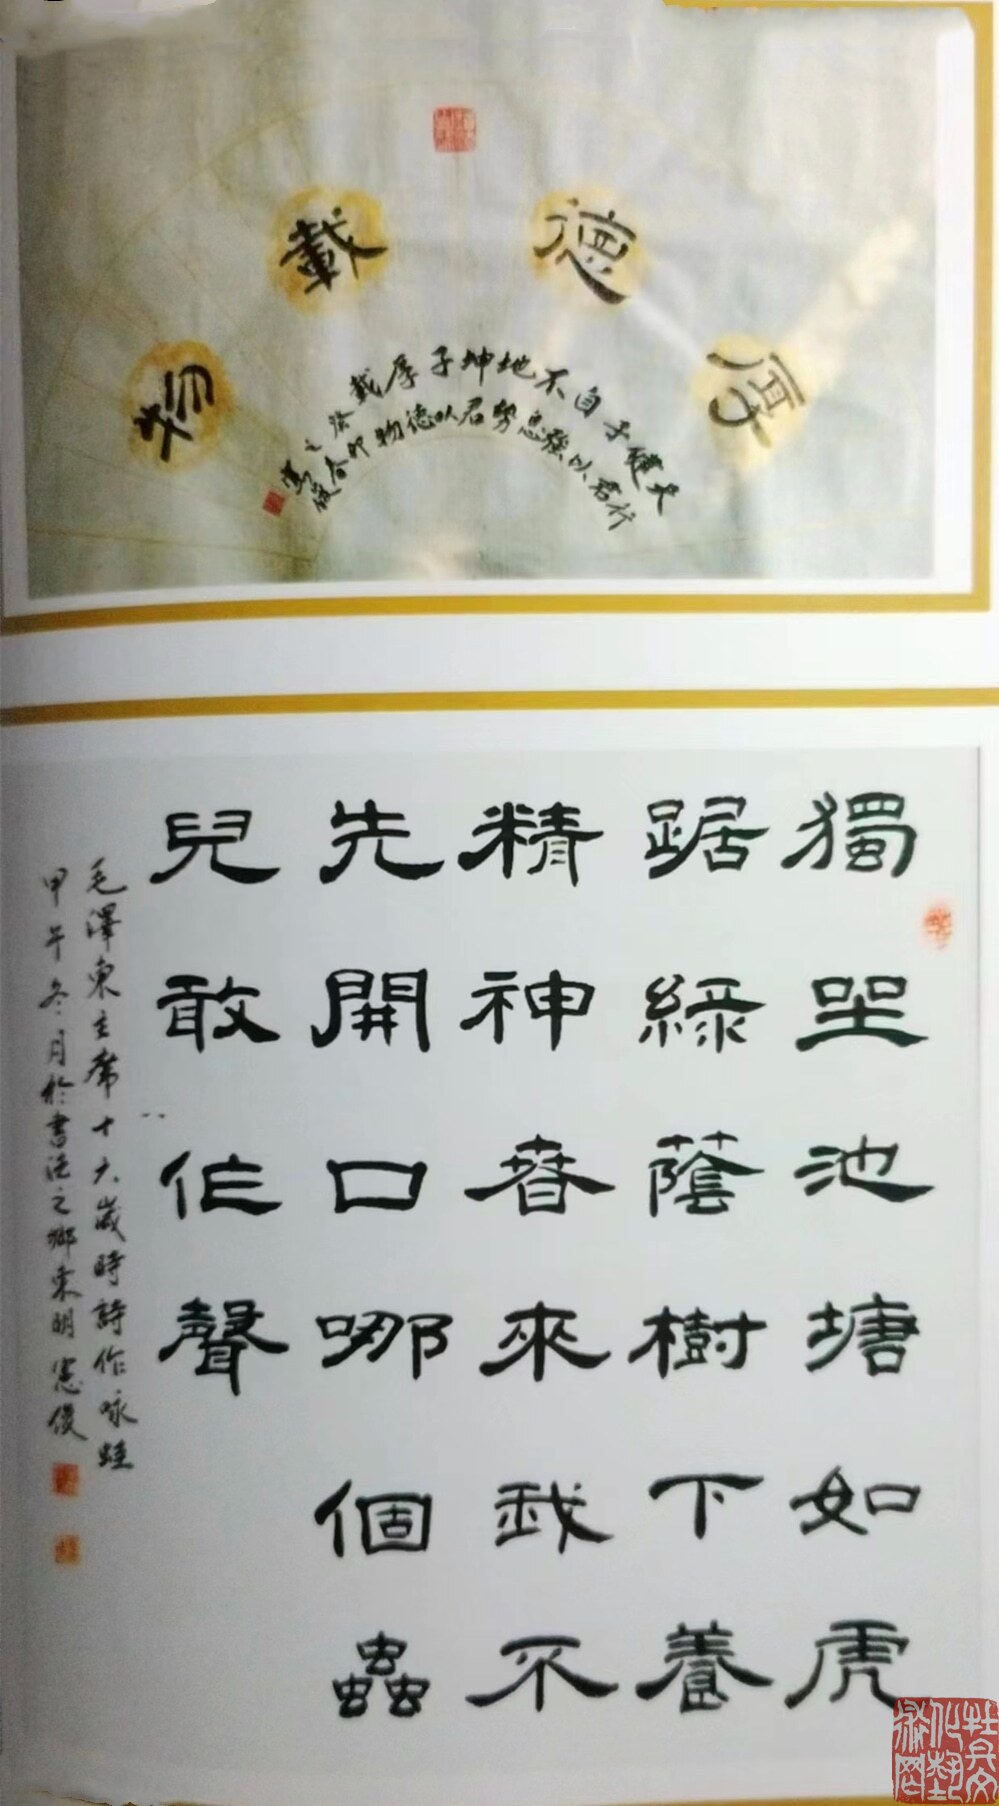 厚德載物
天行健君子以自強不息地勢坤君子以厚德載物
獨坐池塘如虎
踞綠蔭樹下養
精神春來我不
先開口哪個蟲
兒敢作聲
毛澤東主席十六歲時詩作咏蛙
甲午冬月於書法之鄉東明憲俊